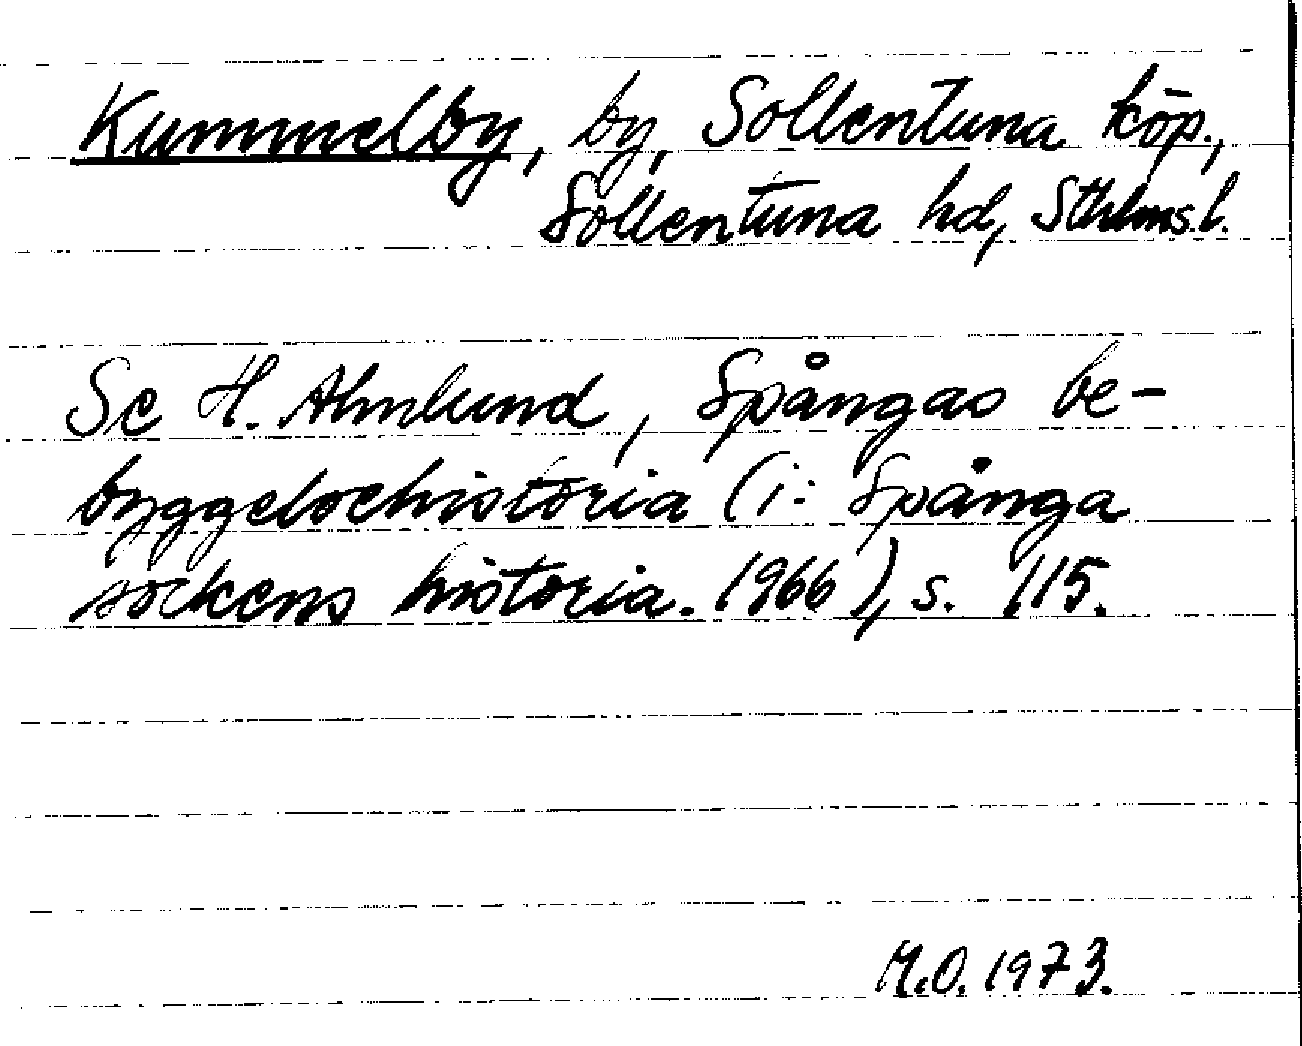 Kummelby, by, Sollentuna köp.,
Sollentuna hd, Sthlms.l.
Se H. Ahnlund, Spångas be-
byggelsehistoria (i: Spånga
sockens historia. 1966), s. 115.
M.O. 1973.